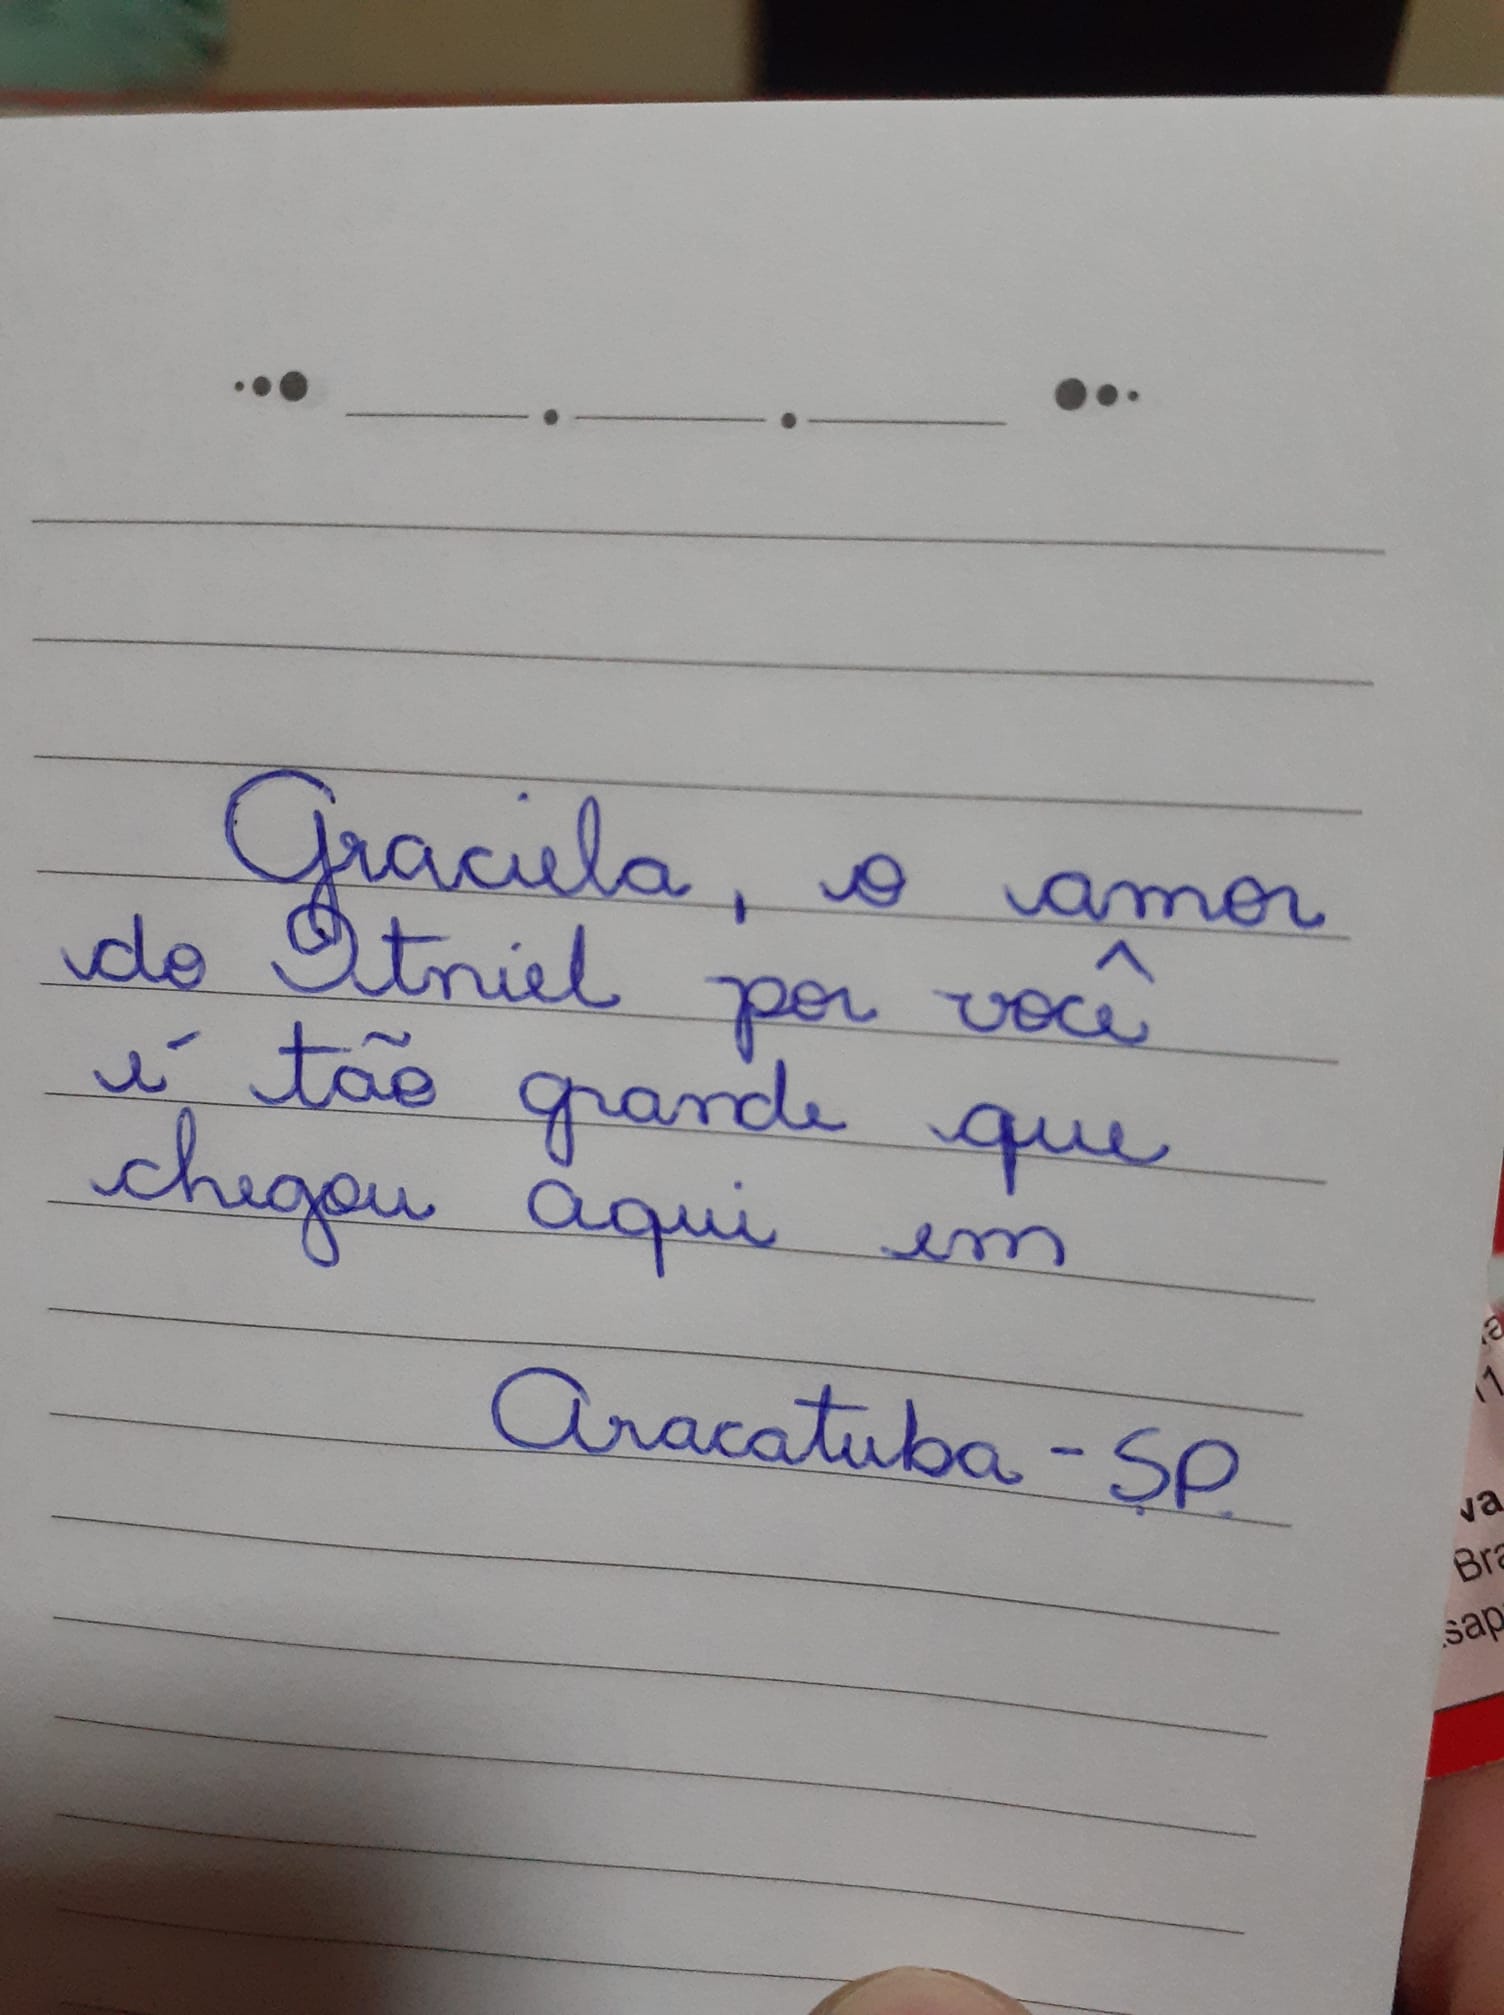 Graciela, o amor
do Otniel por você
é tão grande que
chegou aqui em
Aracatuba - SP.
11
va
Bra
sap